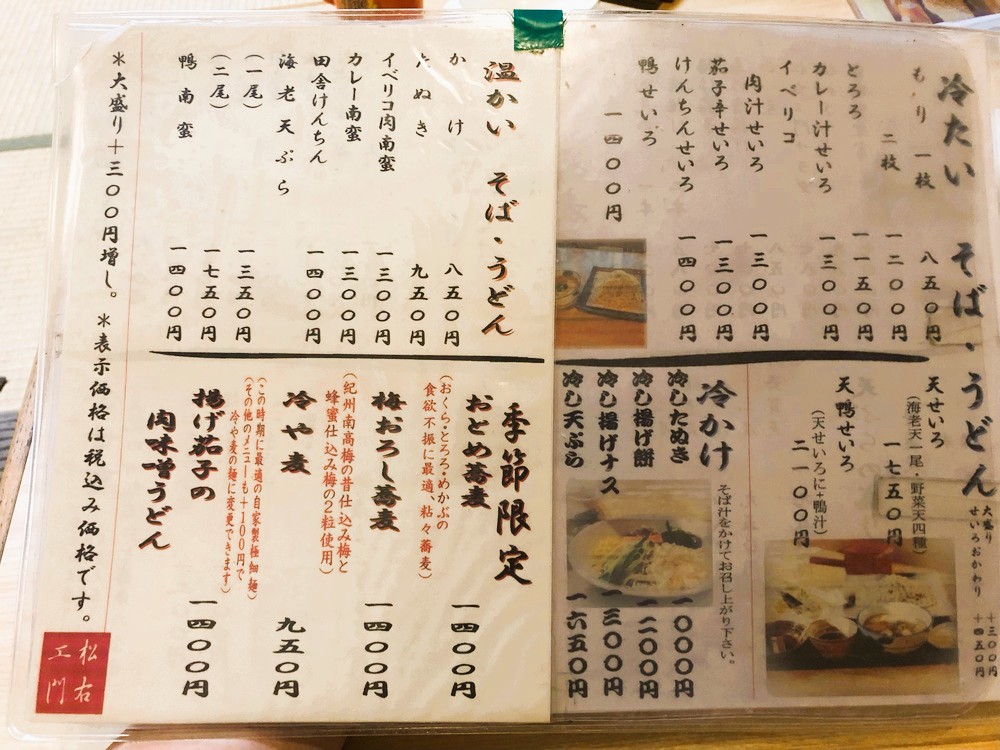 冷たい そば・うどん
大盛り +三〇〇円
せいろおかわり +四五〇円
もり 一枚 八五〇円
二枚 一二〇〇円
とろろ 一一五〇円
カレー汁せいろ 一三〇〇円
イベリコ
肉汁せいろ 一三〇〇円
茄子辛せいろ 一三〇〇円
けんちんせいろ 一四〇〇円
鴨せいろ
一四〇〇円
天せいろ
(海老天一尾・野菜天四種)
一七五〇円
天鴨せいろ
(天せいろに+鴨汁)
二一〇〇円
冷かけ
そば汁をかけてお召し上がり下さい。
冷したぬき 一〇〇〇円
冷し揚げ餅 一二〇〇円
冷し揚げナス 一三〇〇円
冷し天ぷら 一六五〇円
温かい そば・うどん
かけ 八五〇円
たぬき 九五〇円
イベリコ肉南蛮 一三〇〇円
カレー南蛮 一三〇〇円
田舎けんちん 一四〇〇円
海老天ぷら
(一尾) 一三五〇円
(二尾) 一七五〇円
鴨南蛮 一四〇〇円
季節限定
おとめ蕎麦 一四〇〇円
(おくら・とろろ・めかぶの
食欲不振に最適、粘々蕎麦)
梅おろし蕎麦 一四〇〇円
(紀州南高梅の昔仕込み梅と
蜂蜜仕込み梅の2粒使用)
冷や麦 九五〇円
(・この時期に最適の自家製極細麺)
(その他のメニューも+100円で
冷や麦の麺に変更できます)
揚げ茄子の
肉味噌うどん 一四〇〇円
＊大盛り＋三〇〇円増し。 ＊表示価格は税込み価格です。
松右
工門